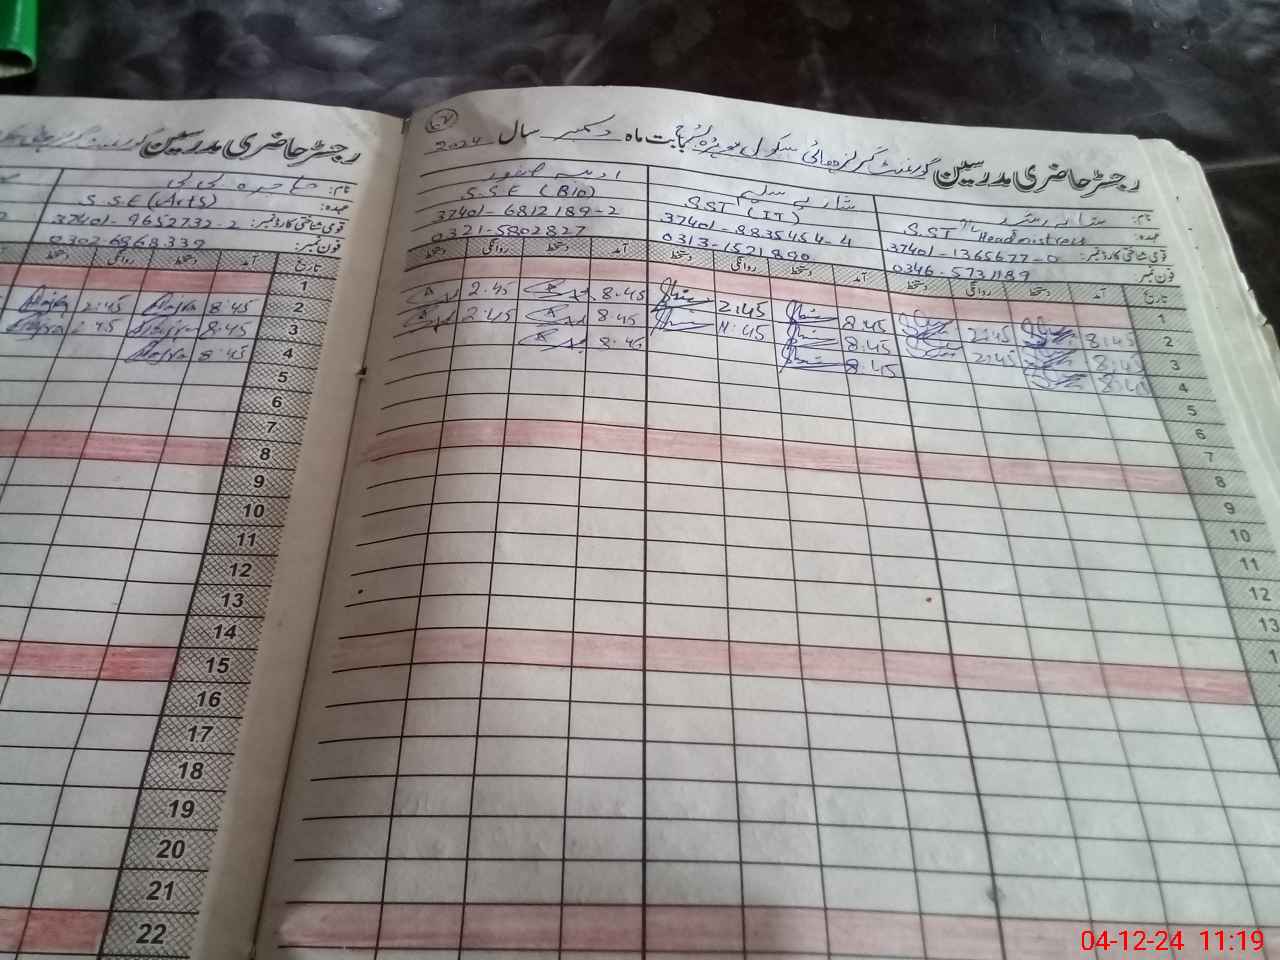 رجسٹر حاضری مدرسین گورنمنٹ گرلز ہائی سکول بابت ماہ دسمبر سال 2024
نام:
عہدہ: SST Headmistress
قومی شناختی کارڈ نمبر: 37401-1365677-0
فون نمبر 0346-5731189
SST (IT)
37401-8835454-4
0313-1521890
S.S.E (BIO)
37401-6812189-2
0321-5802827
تاریخ آمد دستخط روانگی دستخط آمد دستخط روانگی دستخط آمد دستخط روانگی دستخط
1
2 8:45 2:45 8:45 2:45 8.45 2.45
3 8:45 2:45 8:45 2:45 8:45 2:45
4 8:45 8:45 8:45
5
6
7
8
9
10
11
12
13
1
رجسٹر حاضری مدرسین
نام: حاجرہ بی بی
عہدہ: S.S.E (Arts)
قومی شناختی کارڈ نمبر: 37401-9652732-2
فون نمبر: 0302-6868339
تاریخ آمد دستخط روانگی دستخط
1
2 8:45 Hajra 2:45 Hajra
3 8:45 Hajra 2:45 Hajra
4 8:45 Hajra
5
6
7
8
9
10
11
12
13
14
15
16
17
18
19
20
21
22
04-12-24 11:19